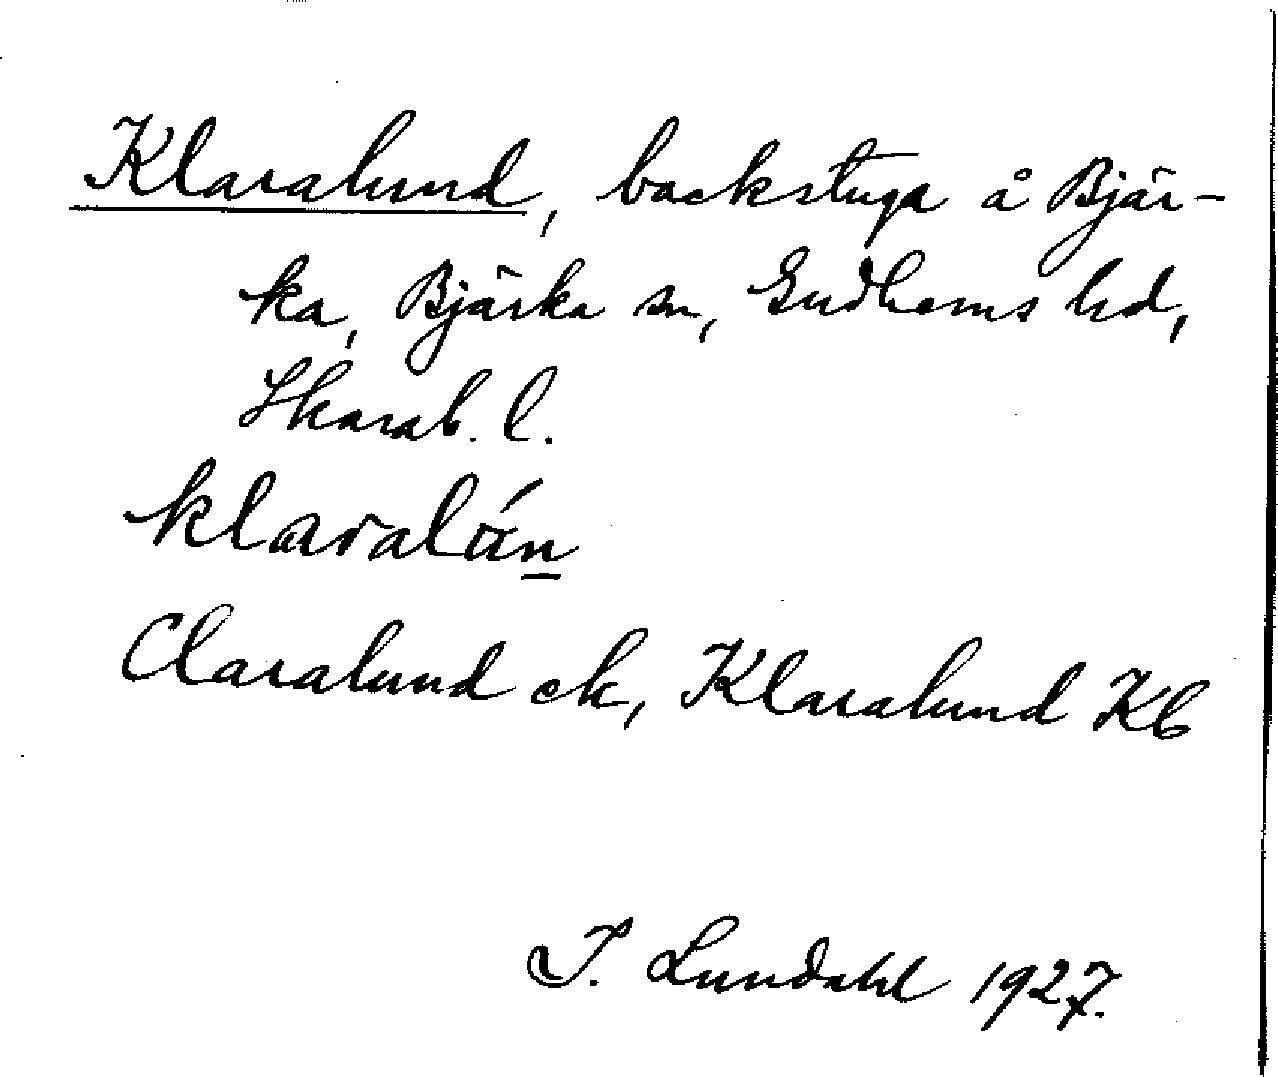 Klaralund, backstuga å Bjär-
ka, Bjärka sn, Gudhems hd,
Skarab. l.
Claralund ek, Klaralund Kb
I. Lundahl 1927.